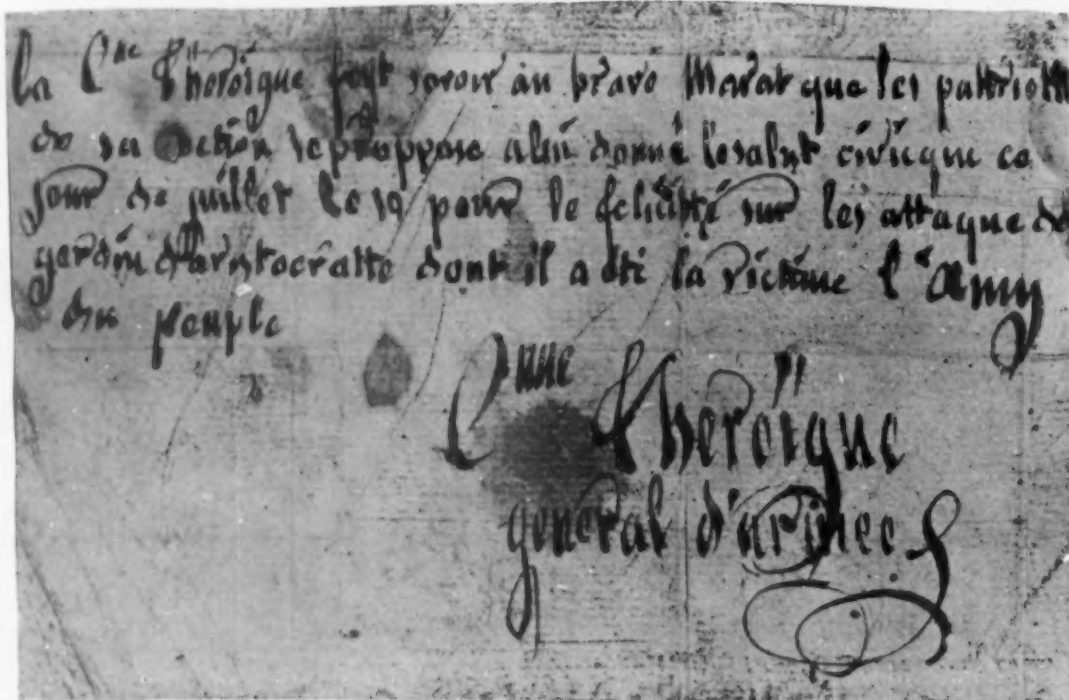 la C^ne Theroigue fayt savoir au brave Marat que les pattriotte
de sa section se proppose a lui donné le salut civicque ce
jour de juillet le 19 pour le felicitté sur les attaque de
gerdin d'aristocratte dont il a été la victime l'amy
du peuple
C^nne Theroigue
general d'armée